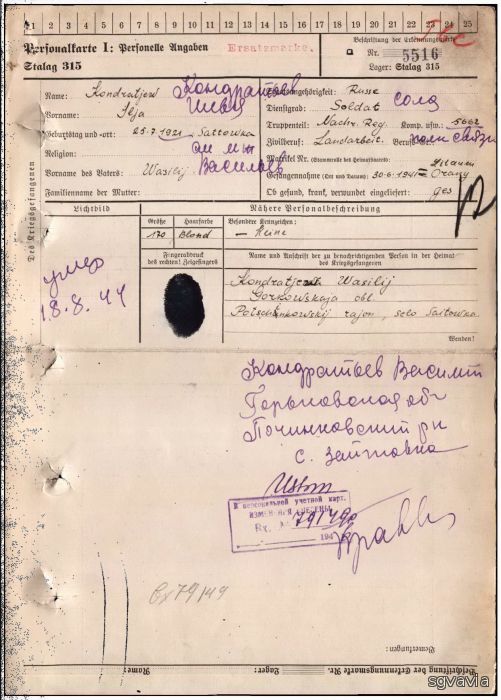 1 2 3 4 5 6 7 8 9 10 11 12 13 14 15 16 17 18 19 20 21 22 23 24 25
Personalkarte I: Personelle Angaben
Ersatzmarke.
Beschriftung der Erkennungsmarke
Stalag 315
Nr. 5516
Lager: Stalag 315
Des Kriegsgefangenen
Name: Kondratjew Кондратьев
Vorname: Ilja Илья
Geburtstag und -ort: 25.7.1921. Saitowka
Religion:
Vorname des Vaters: Wasilij Васильев
Familienname der Mutter:
Staatsangehörigkeit: Russe
Dienstgrad: Soldat солд
Truppenteil: Nachr. Reg. Komp. usw.: 5662
Zivilberuf: Landarbeit. Berufs-Gr.: полк связи
Matrikel Nr. (Stammrolle des Heimatstaates)
Gefangennahme (Ort und Datum): 30.6.1941 Orany
Ob gesund, krank, verwundet eingeliefert: ges
Lichtbild
Nähere Personalbeschreibung
Größe Haarfarbe Besondere Kennzeichen:
170 Blond — Keine
умер
18.8.44
Fingerabdruck
des rechten! Zeigefingers
Name und Anschrift der zu benachrichtigenden Person in der Heimat
des Kriegsgefangenen
Kondratjew Wasilij
Gorkowskaja obl.
Potschinkowskij rajon, selo Saitowka
Wenden!
Кондратьев Василий
Горьковская обл
Починковский рн
с. Зайтовка
В персональной учетной карт.
ИЗМЕНЕНИЯ ВНЕСЕНЫ
Вх. № 79/49
194
Вх 79/49
Bemerkungen:
Name:
Lager:
Beschriftung der Erkennungsmarke Nr.
sgvavia